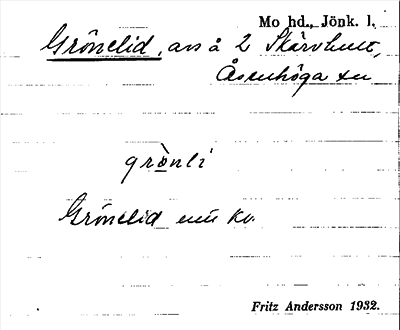 Mo hd., Jönk. l.
Grönelid, avs å 2 Skärvhult,
Åsenhöga sn
grònli
Grönelid enl. kv.
Fritz Andersson 1932.